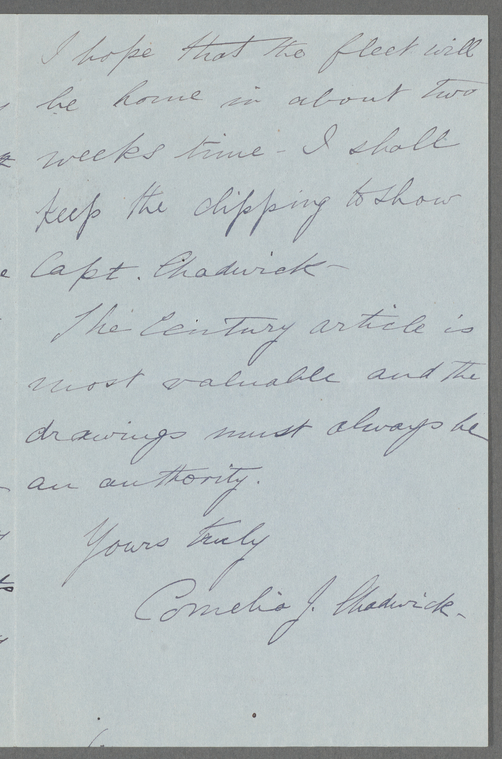 I hope that the fleet will
be home in about two
weeks time - I shall
keep the clipping to show
Capt. Chadwick -
The Century article is
most valuable and the
drawings must always be
an authority.
Yours truly
Cornelia J. Chadwick -